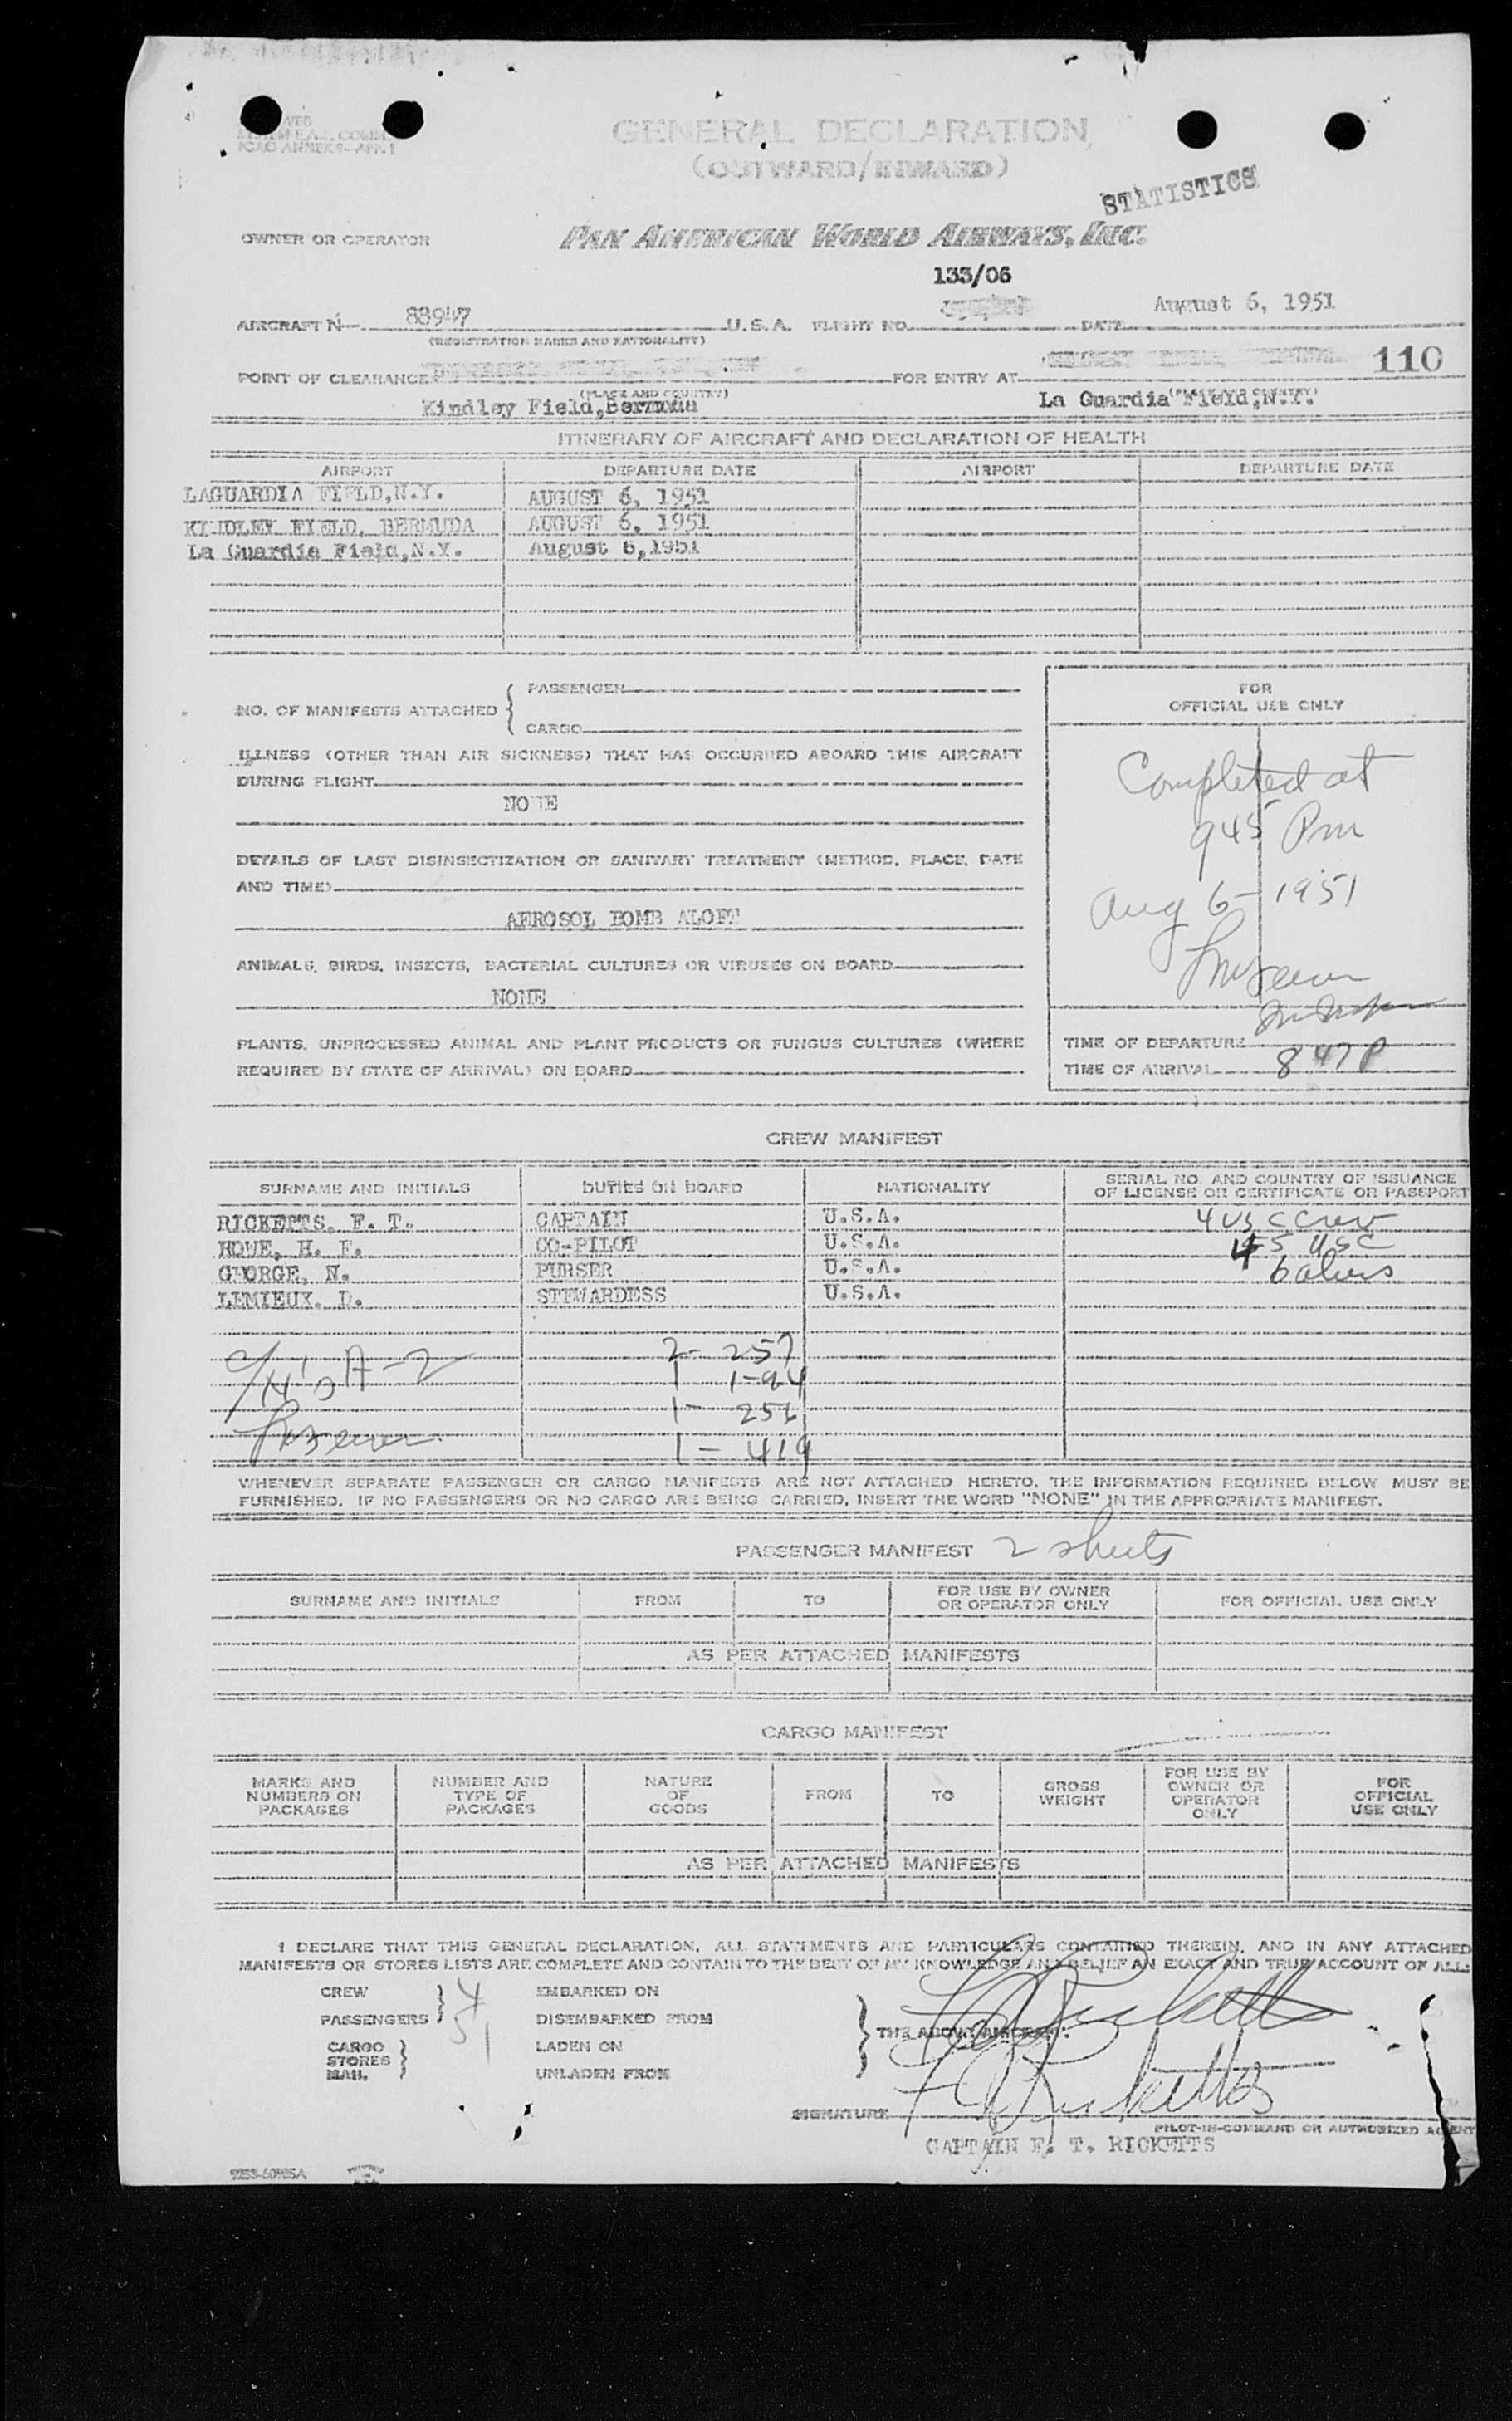 GENERAL DECLARATION
(OUTWARD/INWARD)
STATISTICS
OWNER OR OPERATOR PAN AMERICAN WORLD AIRWAYS, INC.
133/06
AIRCRAFT N 88947 U.S.A. FLIGHT NO. DATE August 6, 1951
(REGISTRATION MARKS AND NATIONALITY)
POINT OF CLEARANCE FOR ENTRY AT 110
(PLACE AND COUNTRY)
Kindley Field, Bermuda La Guardia Field, N.Y.
ITINERARY OF AIRCRAFT AND DECLARATION OF HEALTH
AIRPORT DEPARTURE DATE AIRPORT DEPARTURE DATE
LAGUARDIA FIELD,N.Y. AUGUST 6, 1951
KINDLEY FIELD, BERMUDA AUGUST 6, 1951
La Guardia Field,N.Y. August 6,1951
NO. OF MANIFESTS ATTACHED { PASSENGER
CARGO
FOR
OFFICIAL USE ONLY
ILLNESS (OTHER THAN AIR SICKNESS) THAT HAS OCCURRED ABOARD THIS AIRCRAFT
DURING FLIGHT
NONE
DETAILS OF LAST DISINSECTIZATION OR SANITARY TREATMENT (METHOD, PLACE, DATE
AND TIME)
AEROSOL BOMB ALOFT
ANIMALS, BIRDS, INSECTS, BACTERIAL CULTURES OR VIRUSES ON BOARD
NONE
PLANTS, UNPROCESSED ANIMAL AND PLANT PRODUCTS OR FUNGUS CULTURES (WHERE
REQUIRED BY STATE OF ARRIVAL) ON BOARD
Completed at
945 Pm
Aug 6-1951
TIME OF DEPARTURE
TIME OF ARRIVAL 8 47 P
CREW MANIFEST
SURNAME AND INITIALS DUTIES ON BOARD NATIONALITY SERIAL NO. AND COUNTRY OF ISSUANCE
OF LICENSE OR CERTIFICATE OR PASSPORT
RICKETTS, F. T. CAPTAIN U.S.A. 4 USC Crew
HOWE, H. F. CO-PILOT U.S.A. 45 USC
GEORGE, N. PURSER U.S.A. 6 aliens
LEMIEUX, D. STEWARDESS U.S.A.
2- 257
1 1-94
1- 256
1- 419
WHENEVER SEPARATE PASSENGER OR CARGO MANIFESTS ARE NOT ATTACHED HERETO, THE INFORMATION REQUIRED BELOW MUST BE
FURNISHED. IF NO PASSENGERS OR NO CARGO ARE BEING CARRIED, INSERT THE WORD "NONE" IN THE APPROPRIATE MANIFEST.
PASSENGER MANIFEST 2 sheets
SURNAME AND INITIALS FROM TO FOR USE BY OWNER
OR OPERATOR ONLY FOR OFFICIAL USE ONLY
AS PER ATTACHED MANIFESTS
CARGO MANIFEST
MARKS AND
NUMBERS ON
PACKAGES NUMBER AND
TYPE OF
PACKAGES NATURE
OF
GOODS FROM TO GROSS
WEIGHT FOR USE BY
OWNER OR
OPERATOR
ONLY FOR
OFFICIAL
USE ONLY
AS PER ATTACHED MANIFESTS
I DECLARE THAT THIS GENERAL DECLARATION, ALL STATEMENTS AND PARTICULARS CONTAINED THEREIN, AND IN ANY ATTACHED
MANIFESTS OR STORES LISTS ARE COMPLETE AND CONTAIN TO THE BEST OF MY KNOWLEDGE AND BELIEF AN EXACT AND TRUE ACCOUNT OF ALL:
CREW 4 EMBARKED ON
PASSENGERS 51 DISEMBARKED FROM
THE ABOVE AIRCRAFT.
CARGO LADEN ON
STORES
MAIL UNLADEN FROM
F T Ricketts
F T Ricketts
SIGNATURE
PILOT-IN-COMMAND OR AUTHORIZED AGENT
CAPTAIN F. T. RICKETTS